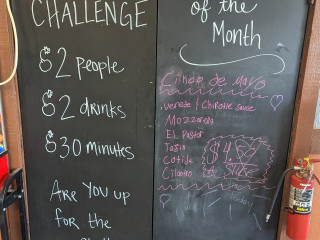 CHALLENGE
2 people
2 drinks
30 minutes
ARE YOU UP
FOR THE
of the
Month
Cinco de Mayo
/ Chipotle Sauce
Mozzarella
EL Pastor
Tajin
Cotija
Cilantro
$4